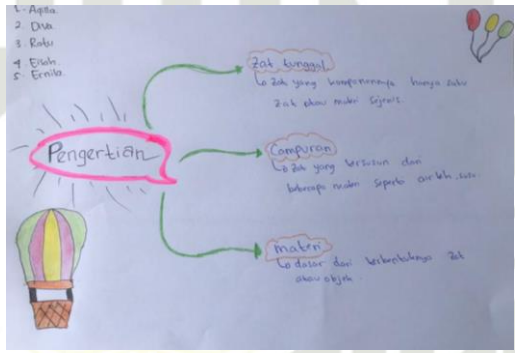 1. Aqilla.
2. Diva
3. Ratu
4. Eisah.
5. Ernila.
Pengertian
Zat tunggal
Zat yang komponennya hanya satu
zat atau materi sejenis.
Campuran
Zat yang tersusun dari
beberapa materi seperti air teh, susu
materi
dasar dari terbentuknya zat
atau objek.